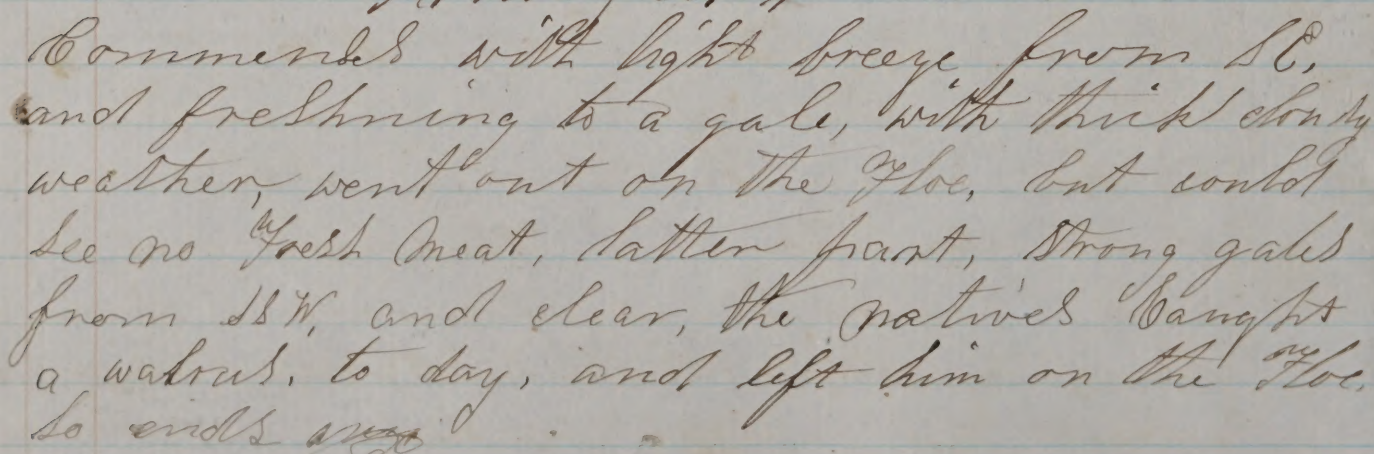 Commences with light breeze from SE,
and freshning to a gale, with thick cloudy
weather, went out on the Floe, but could
see no Fresh Meat, latter part, strong gales
from SSW, and clear, the natives Caught
a walrus, to day, and left him on the Floe.
So ends